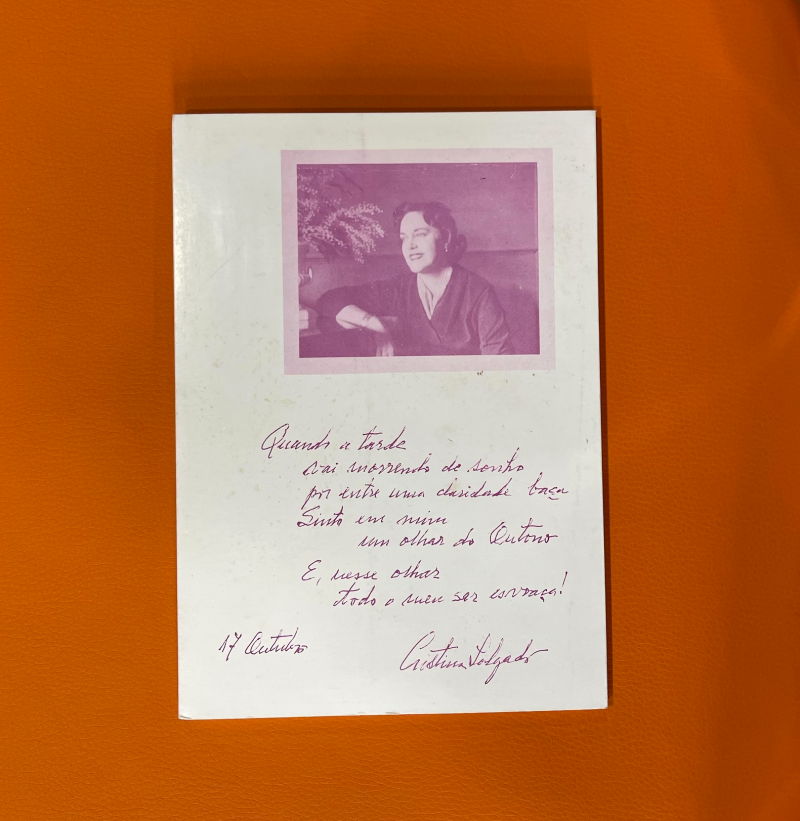 Quando a tarde
vai morrendo de sonho
por entre uma claridade baça
Sinto em mim
um olhar do Outono
E, nesse olhar
todo o meu ser esvoaça!
17 Outubro
Cristina Salgado